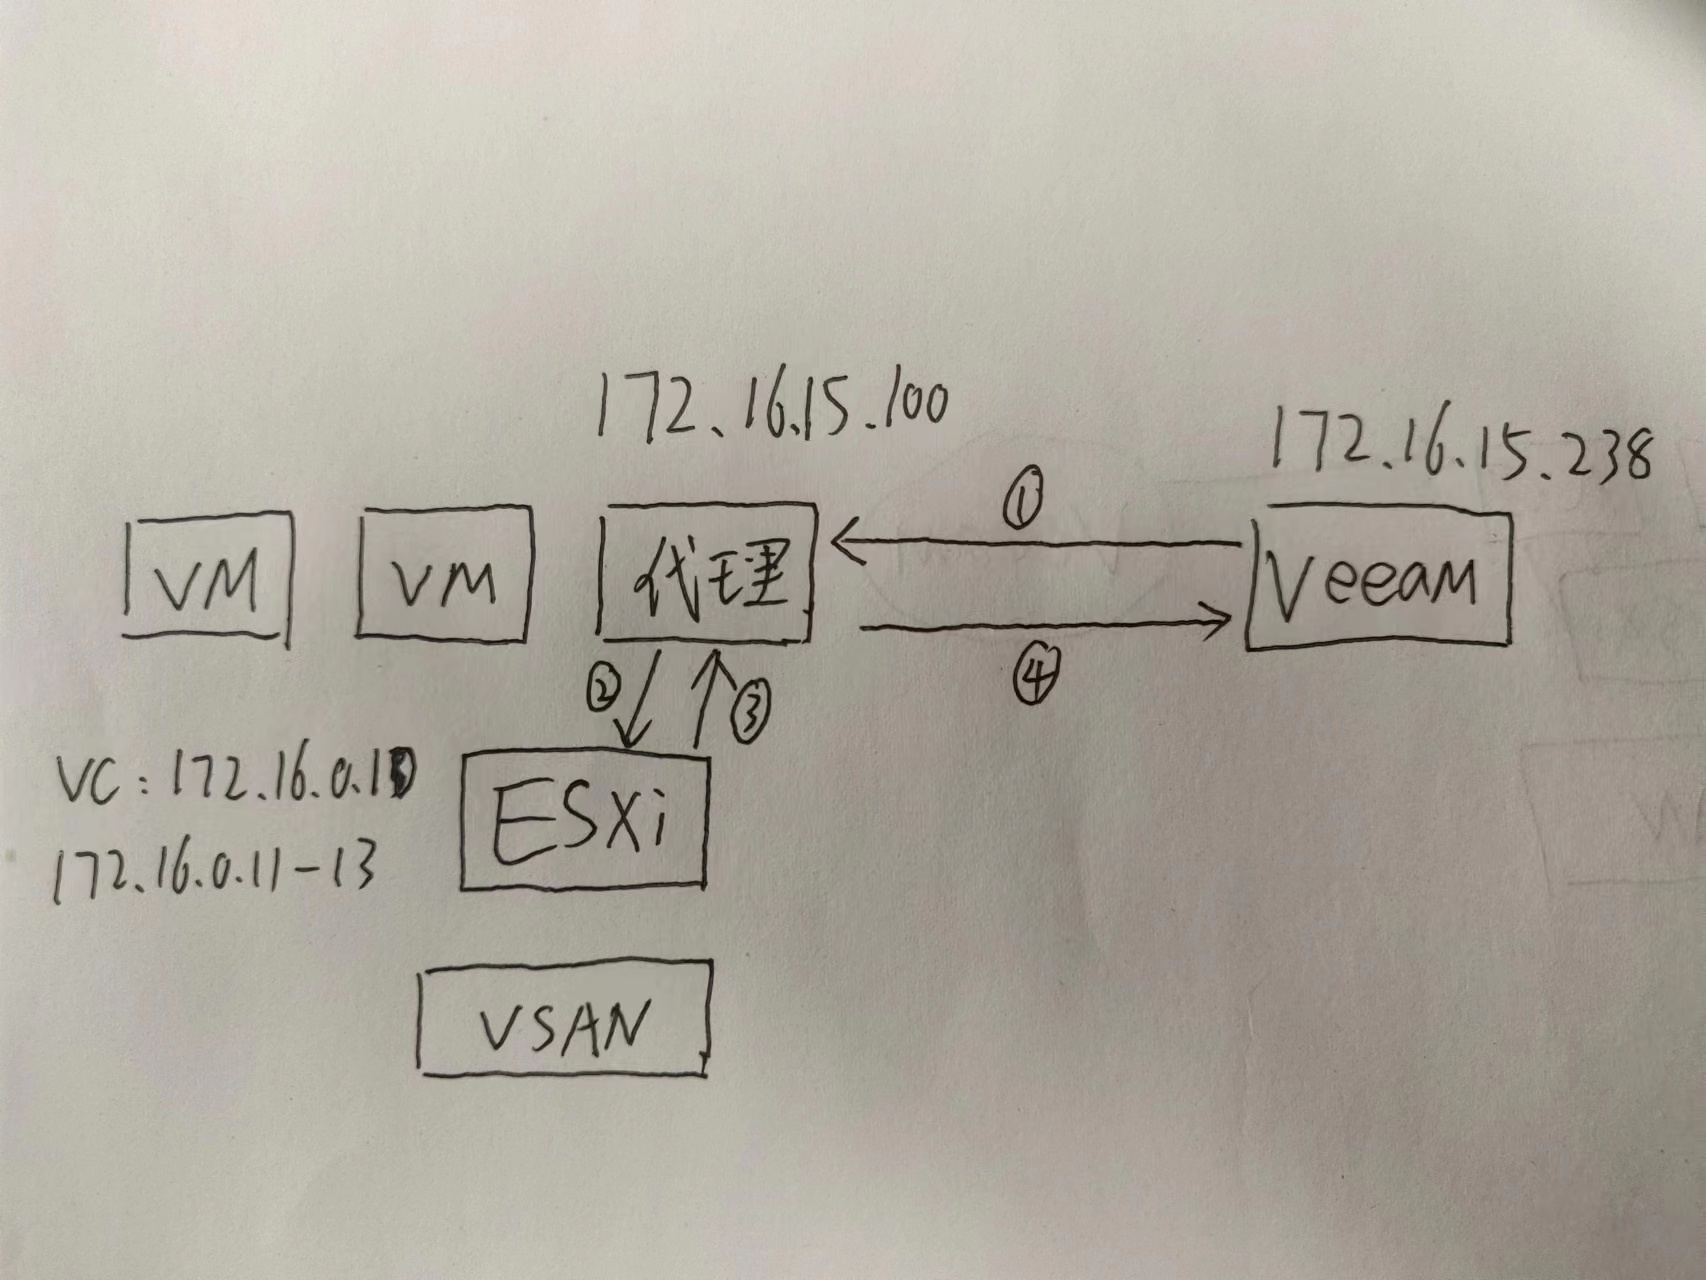 172.16.15.100
172.16.15.238
①
VM
VM
代理
Veeam
④
②
③
VC: 172.16.0.10
ESXi
172.16.0.11-13
VSAN